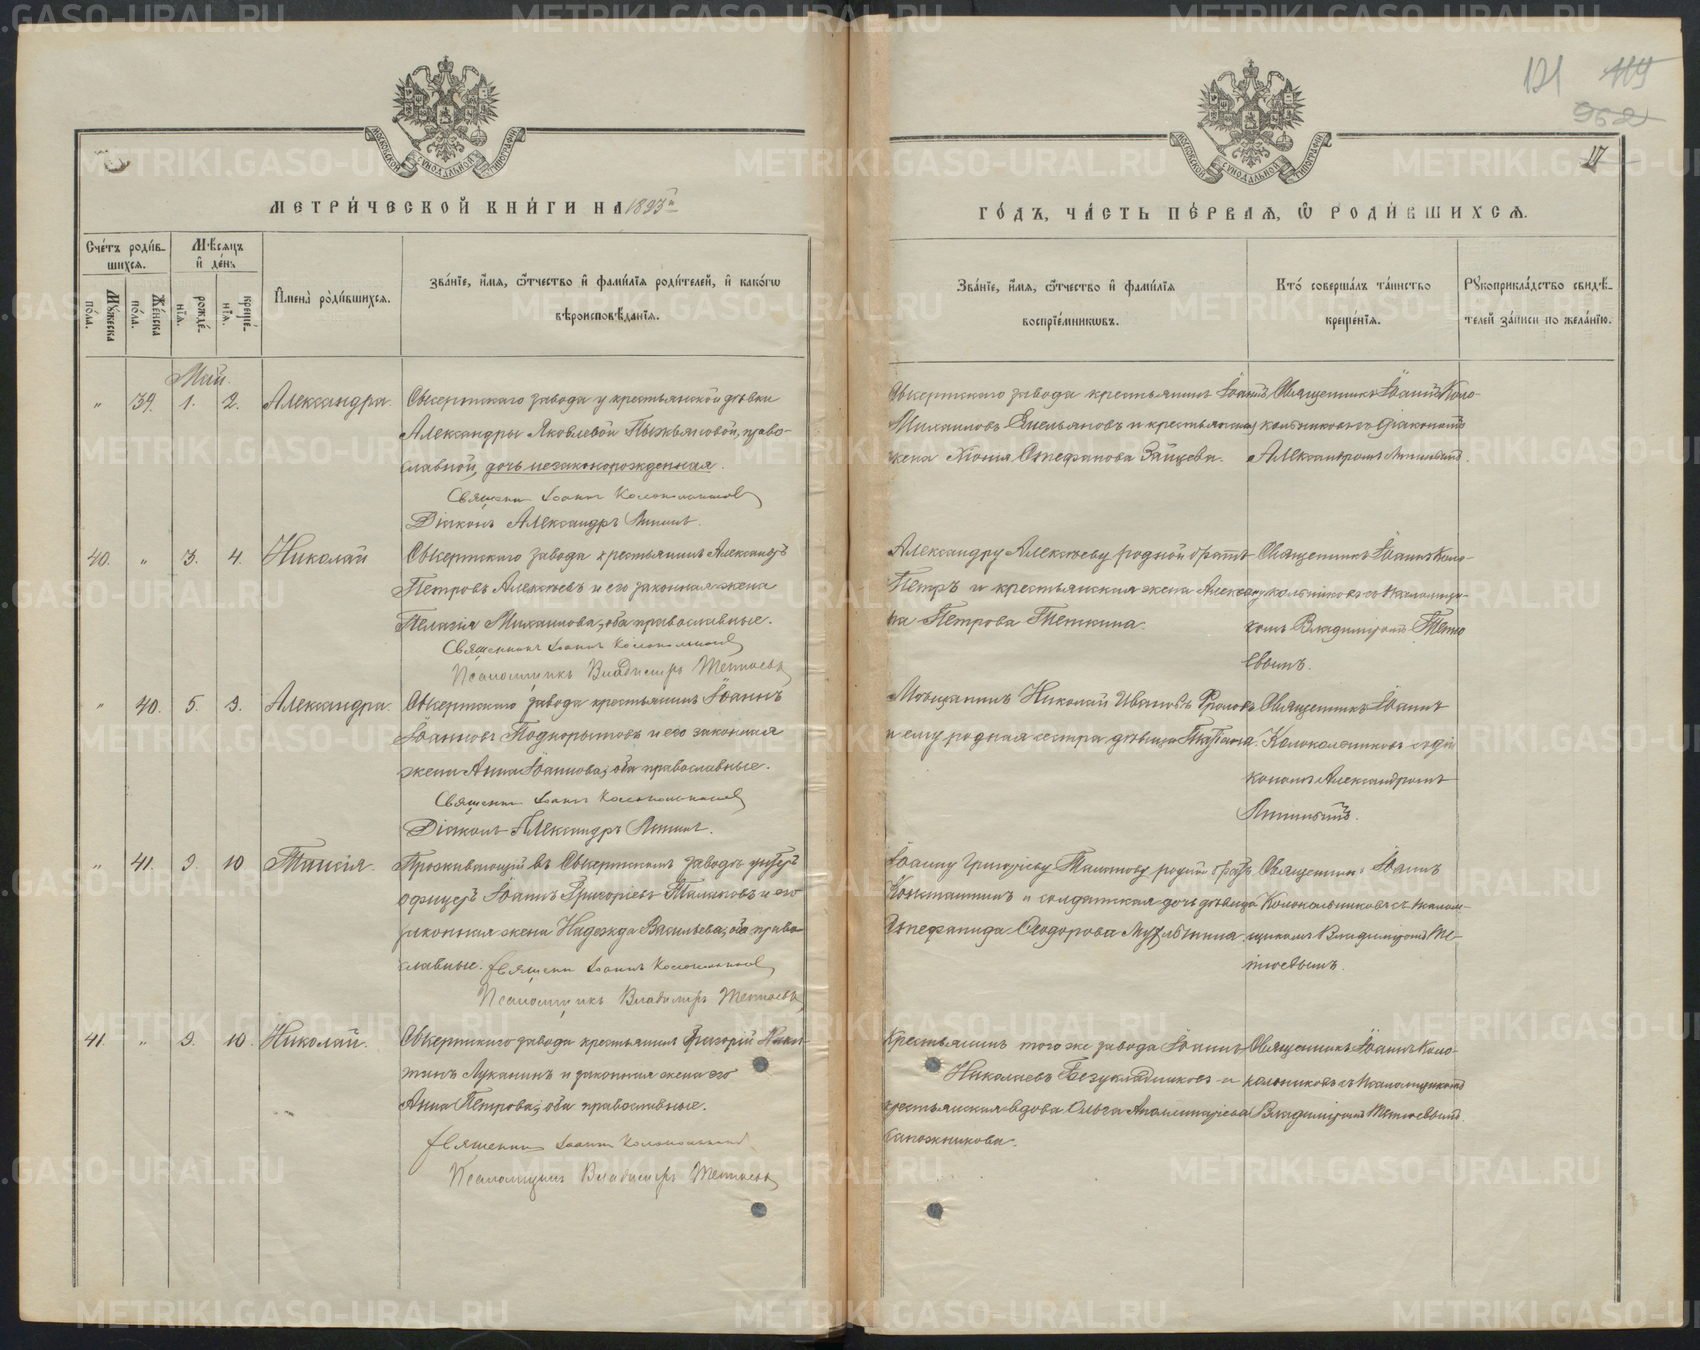 121 119
962
17
МЕТРИ́ЧЕСКОЙ КНИ́ГИ НА 1893й
ГО́ДЪ, ЧА́СТЬ ПЕ́РВАЯ, Ѡ РОДИ́ВШИХСЯ.
Сче́тъ роди́в-
шихся.
Му́жеска по́ла.
Же́нска по́ла.
Мѣ́сяцъ
и҆ де́нь
рожде́-
нїя.
креще́-
нїя.
И҆мена̀ роди́вшихся.
Зва́нїе, и҆́мя, ѻ҆́тчество и҆ фами́лїя роди́телей, и҆ како́гѡ
вѣроисповѣ́данїя.
Зва́нїе, и҆́мя, ѻ҆́тчество и҆ фами́лїя
воспрїе́мникѡвъ.
Кто́ соверша́лъ та́инство
креще́нїя.
Рꙋкоприкла́дство свидѣ́-
телей за́писи по жела́нїю.
Май.
" 39. 1. 2. Александра.
Сысертскаго завода у крестьянской дѣвки
Александры Яковлевой, право-
славной, дочь незаконорожденная.
Священн Іоаннъ Колокольниковъ
Діаконъ Александръ
Сысертскаго завода крестьянинъ Іоаннъ
Михаиловъ Емельяновъ и крестьянская
жена Хіонія Стефанова Зайцева.
Священникъ Іоаннъ Коло-
кольниковъ съ діакономъ
Александромъ
40. " 3. 4. Николай
Сысертскаго завода крестьянинъ Александръ
Петровъ Алексѣевъ и его законная жена
Пелагія Михаилова, оба православные.
Священникъ Іоаннъ Колокольниковъ
Псаломщикъ Владимиръ Тетюевъ
Александру Алексѣеву родной братъ
Петръ и крестьянская жена Александ-
ра Петрова Теткина.
Священникъ Іоаннъ Коло-
кольниковъ съ псаломщи-
комъ Владимиромъ Тетю
евымъ.
" 40. 5. 9. Александра.
Сысертскаго завода крестьянинъ Іоаннъ
Іоанновъ Подкорытовъ и его законная
жена Анна Іоаннова, оба православные.
Священн Іоаннъ Колокольниковъ
Діаконъ Александръ
Мѣщанинъ Николай Ивановъ Фроловъ
и ему родная сестра дѣвица
Священникъ Іоаннъ
Колокольниковъ съ діа
кономъ Александромъ
" 41. 9. 10. Таисія.
Проживающій въ Сысертскомъ заводѣ унтеръ
офицеръ Іоаннъ Григорьевъ Талановъ и его
законная жена Надежда Васильева, оба право
славные. Священн Іоаннъ Колокольниковъ
Псаломщикъ Владимиръ Тетюевъ
Іоанну Григорьеву Таланову родной братъ
Константинъ и солдатская дочь дѣвица
Стефанида Ѳеодорова
Священникъ Іоаннъ
Колокольниковъ съ псалом-
щикомъ Владимиромъ Те-
тюевымъ.
41. " 9. 10. Николай.
Сысертскаго завода крестьянинъ Григорій Ники-
тинъ Луканинъ и законная жена его
Анна Петрова, оба православные.
Священникъ Іоаннъ Колокольниковъ
Псаломщикъ Владимиръ Тетюевъ
Крестьянинъ того же завода Іоаннъ
Николаевъ Безукладниковъ и
крестьянская вдова Ольга Аполинаріева
Сапожникова.
Священникъ Іоаннъ Коло-
кольниковъ съ псаломщикомъ
Владимиромъ Тетюевымъ
METRIKI.GASO-URAL.RU